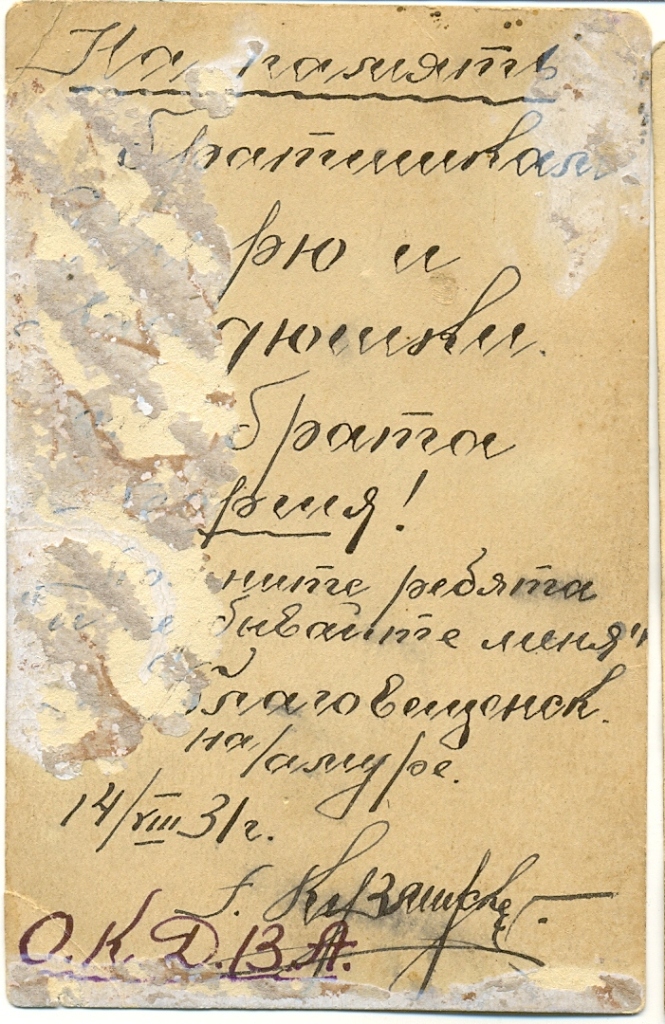 На память
братишкам
рю и
тюшки.
брата
рия!
ните ребята
бывайте миня"
Благовещенск.
на/амуре.
14/VIII 31г.
О.К.Д.В.А.